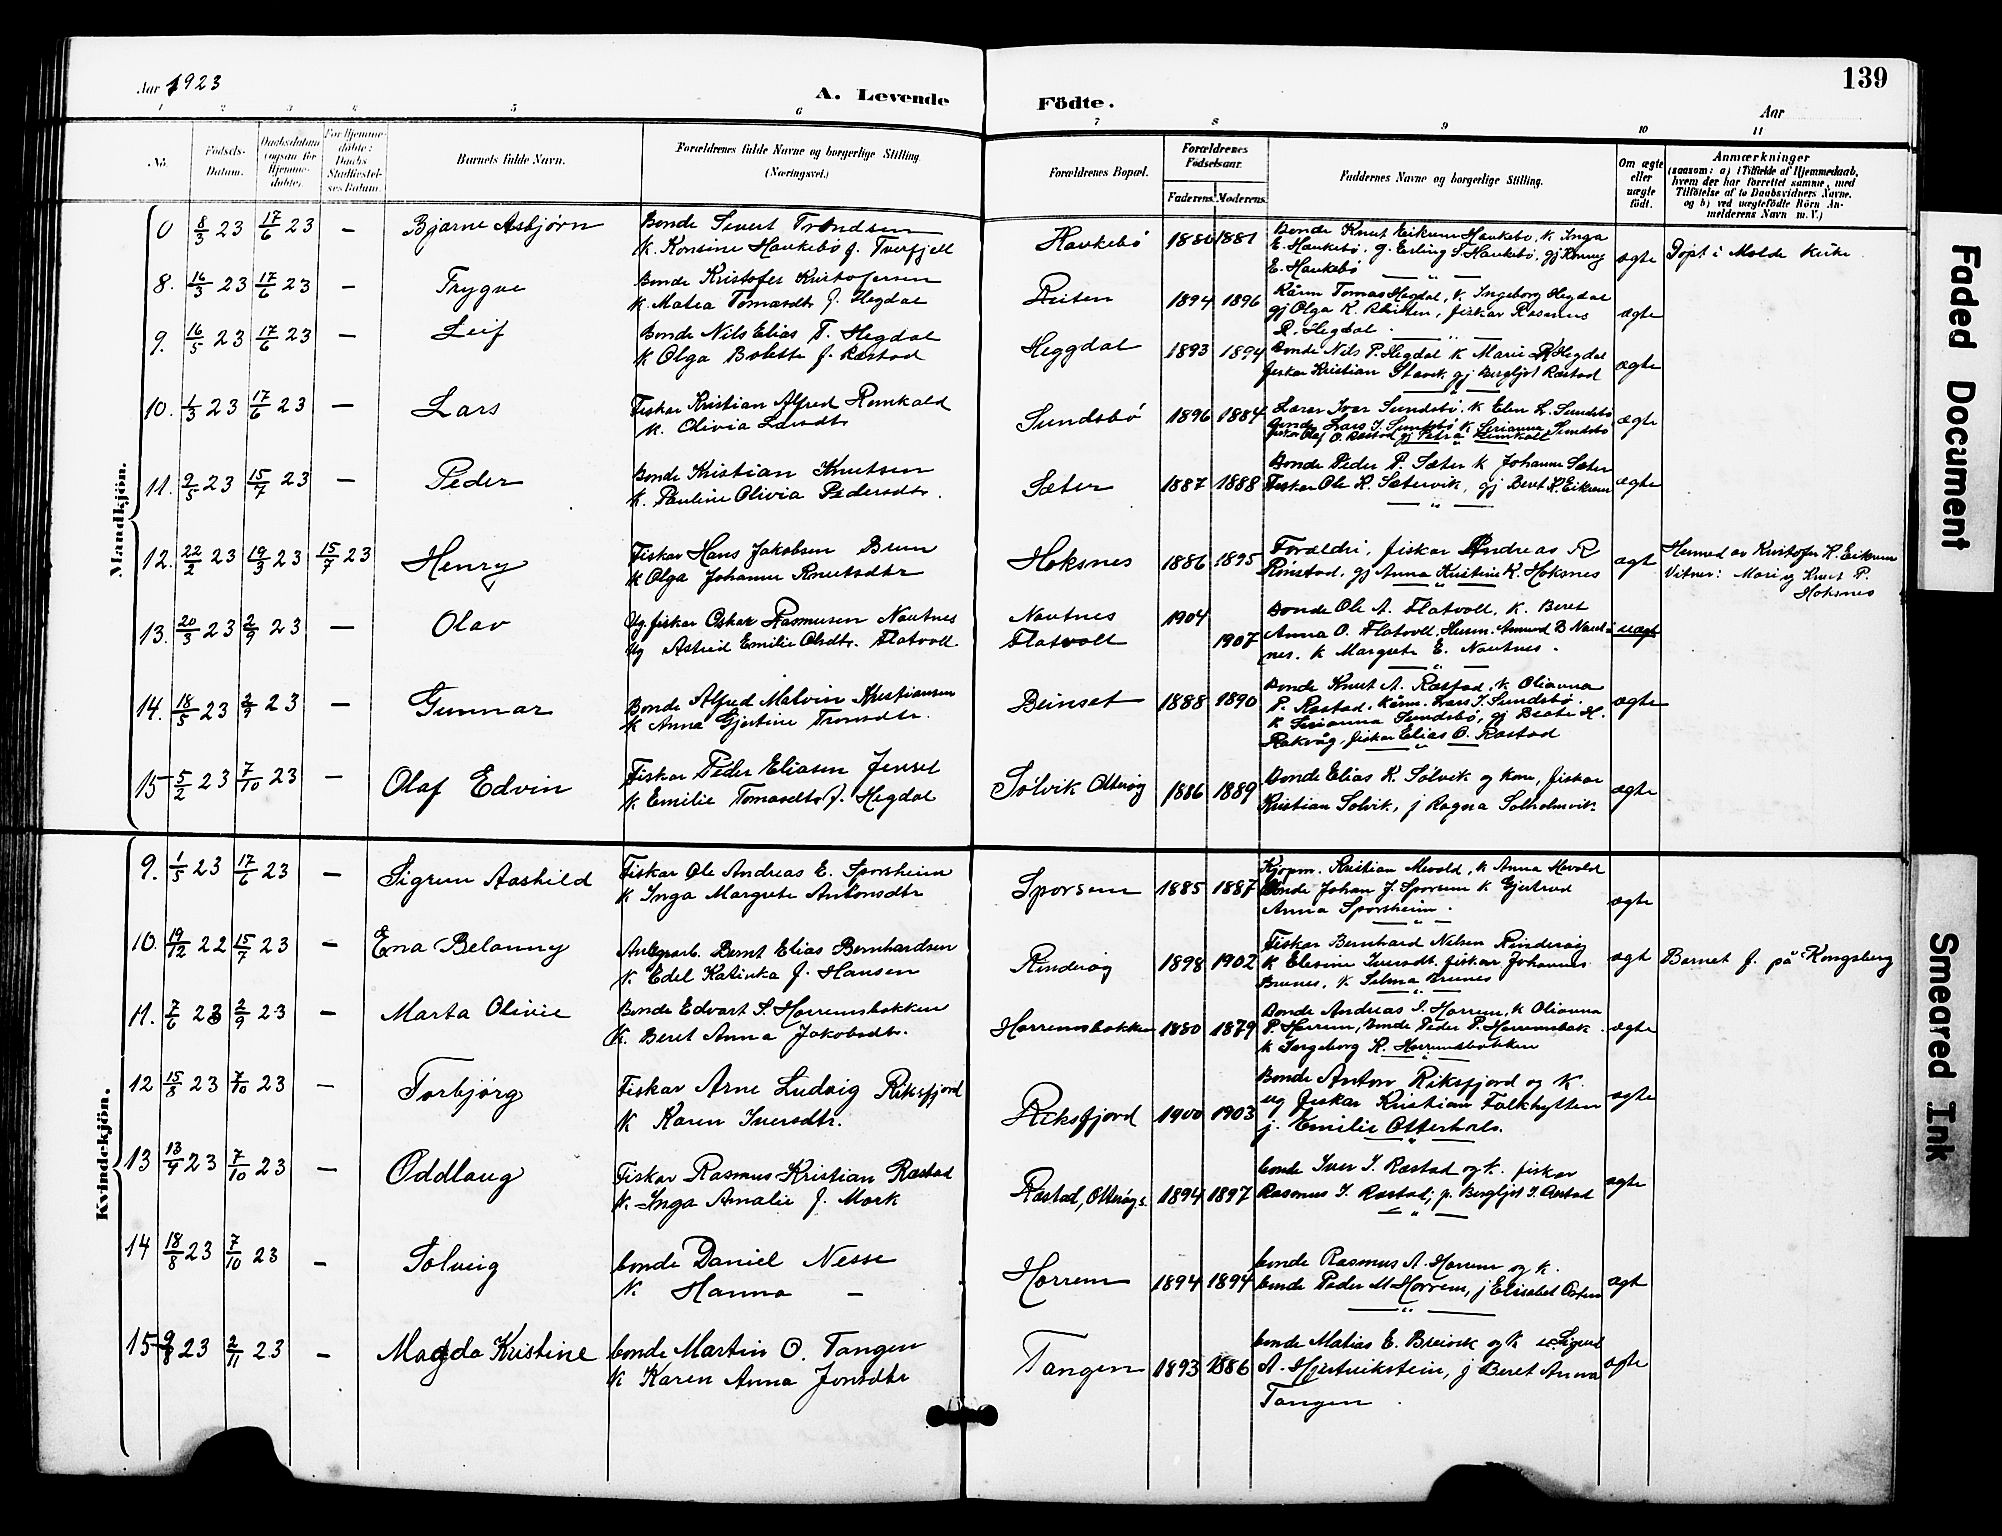 Aar 1923
A. Levende Födte.
139
Aar
1 2 3 4 5 6 7 8 9 10 11
No.
Födsels-
Datum.
Daabsdatum
(ogsaa for
Hjemme-
döbte).
For Hjemme-
döbte:
Daabs
Stadfæstel-
ses Datum.
Barnets fulde Navn.
Forældrenes fulde Navne og borgerlige Stilling.
(Næringsvei.)
Forældrenes Bopæl.
Forældrenes
Födselsaar.
Faderens. Moderens.
Faddernes Navne og borgerlige Stilling.
Om ægte
eller
uægte
födt.
Anmærkninger
(saasom: a) i Tilfælde af Hjemmedaab,
hvem der har forrettet samme, med
Tilföielse af to Daabsvidners Navne.
og b) ved uægtefödte Börn An-
melderens Navn m. V.)
Mandkjön.
0 8/3 23 17/6 23 — Bjarne Asbjørn
Bonde Sivert Trondsen
K. Konsine Haukebø f. Tverfjell
Haukebø 1881
Bonde Knut Eikrem Haukebø, K Inga
E. Haukebø, g. Erling S. Haukebø, gj
E. Haukebø
ægte Døpt i Molde kirke.
8. 16/3 23 17/6 23 — Trygve
Bonde Kristofer Kristofersen
K. Matea Tomasdtr f. Hegdal
1894 1896
Kårm Tomas Hegdal, K. Ingeborg Hegdal
gj Olga K. fiskar Rasmus
P. Hegdal.
ægte
9. 16/5 23 17/6 23 — Leif
Bonde Nils Elias T. Hegdal
K Olga Bolette f. Rastad
Heggdal 1893 1894
Bonde Nils P. Hegdal K Marie Hegdal
fiskar Kristian Stavik gj Bergljot Rastad
ægte
10. 1/3 23 17/6 23 — Lars
Fiskar Kristian Alfred
K. Olivia Larsdtr
Sundsbø 1896 1884
Lærar Ivar Sundsbø. K Elen L. Sundsbø
Bonde Lars I. Sundsbø K Serianna Sundsbø
fiskar Olaf O. Rastad gj Petra
ægte
11. 9/5 23 15/7 23 — Peder
Bonde Kristian Knutsen
K. Pauline Olivia Pedersdtr.
Sæter 1887 1888
Bonde Peder P. Sæter K Johanne Sæter
Fiskar Ole K. Sætervik, gj Beret K. Eikrem
ægte
12. 22/2 23 19/3 23 15/7 23 Henry
Fiskar Hans Jakobsen Brun
K Olga Johanne Knutsdtr
Hoksnes 1886 1895
Foreldri, fiskar Andreas R
gj Anna Kristine K. Hoksnes
ægt Hemed av Kristofer K. Eikrem
Vitner: Mari og Knut P.
Hoksnes
13. 20/3 23 2/9 23 — Olav
Ug. fiskar Oskar Rasmusen Nautnes
Ug Astrid Emilie Olsdtr. Flatvoll
Nautnes 1904
Flatvoll 1907
Bonde Ole A. Flatvoll. K. Beret
Anna O. Flatvoll. Husm. Amund B Naut-
nes. K Margrete E. Nautnes.
uægt
14. 18/5 23 2/9 23 — Gunnar
Bonde Alfred Malvin Kristiansen
K Anna Gjertine Tronsdtr.
Beinset 1888 1890
Bonde Knut A. Rastad, K Olianna
P. Rastad. Kårm. Lars I. Sundsbø.
K Serianna Sundsbø, gj Beate H.
Rakvåg, fiskar Elias O. Rastad
ægte
15 5/2 23 7/10 23 — Olaf Edvin
Fiskar Peder Eliasen Jenset
K Emilie Tomasdtr f. Hegdal
Sølvik Otterøy 1886 1889
Bonde Elias K. Sølvik og kone, fiskar
Kristian Solvik, j Ragna Solholmvik
ægte
Kvindekjön.
9. 1/5 23 17/6 23 — Sigrun Aashild
Fiskar Ole Andreas E. Sporsheim
K Inga Margrete Antonsdtr
Sporsem 1885 1887
Kjøpm. Kristian Mevold, K Anna Mevold
Bonde Johan J. Sporsem K Gjertrud
Anna Sporsheim.
ægte
10. 19/12 22 15/7 23 — Erna Belonny
Anlegsarb. Bernt Elias Bernhardsen
K. Edel Katinka f. Hansen
Rinderøy 1898 1902
Fiskar Bernhard Nilsen Rinderøy
K Elesine Iversdt. fiskar Johannes
K. Selma
ægt Barnet f. på Kongsberg
11. 7/6 23 2/9 23 — Marta Olivie
Bonde Edvart S. Horremsbakken
K. Beret Anna Jakobsdtr.
Horremsbakken 1880 1879
Bonde Andreas I. Horrem, K Olianna
P. Horrem, Bonde Peder P. Horremsbak.
K Ingeborg K. Horremsbakken
ægte
12 15/8 23 7/10 23 — Torbjørg
Fiskar Arne Ludvig Riksfjord
K Karen Iversdtr.
Riksfjord 1900 1903
Bonde Anton Riksfjord og K.
ug fiskar Kristian Falkhytten
j. Emilie Otterhals.
ægte
13 13/9 23 7/10 23 — Oddlaug
Fiskar Rasmus Kristian Rastad
K. Inga Amalie f. Mork
Rastad, Otterøy s. 1894 1897
bonde Iver I. Rastad og K. fiskar
Rasmus I. Rastad; p. Bergljot I. Rastad
ægte
14 18/8 23 7/10 23 — Solveig
bonde Daniel Nesse
K. Hanna —
Horrem 1894 1894
bonde Rasmus A. Horrem og K.
bonde Peder M Horrem, j Elisabet
ægt
15 9/8 23 2/11 23 — Magda Kristine
bonde Martin O. Tangen
K Karen Anna Jonsdtr
Tangen 1893 1886
bonde Matias E. Breivik og K
A. j Beret Anna
Tangen.
ægte
Faded Document
Smeared Ink